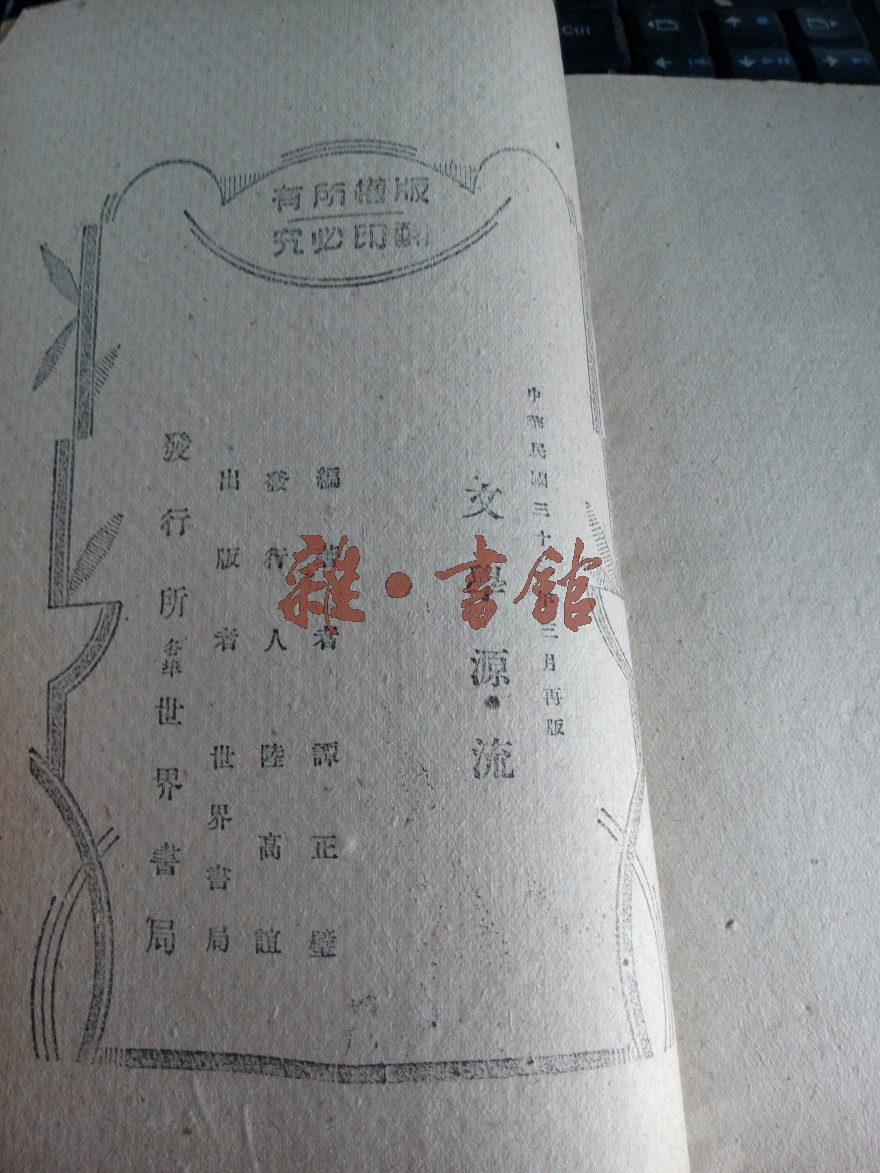 版權所有
翻印必究
中華民國三十三月再版
文學源流
編著者 譚正璧
發行人 陸高誼
出版者 世界書局
發行所 各埠 世界書局
雜·書館
Ctrl